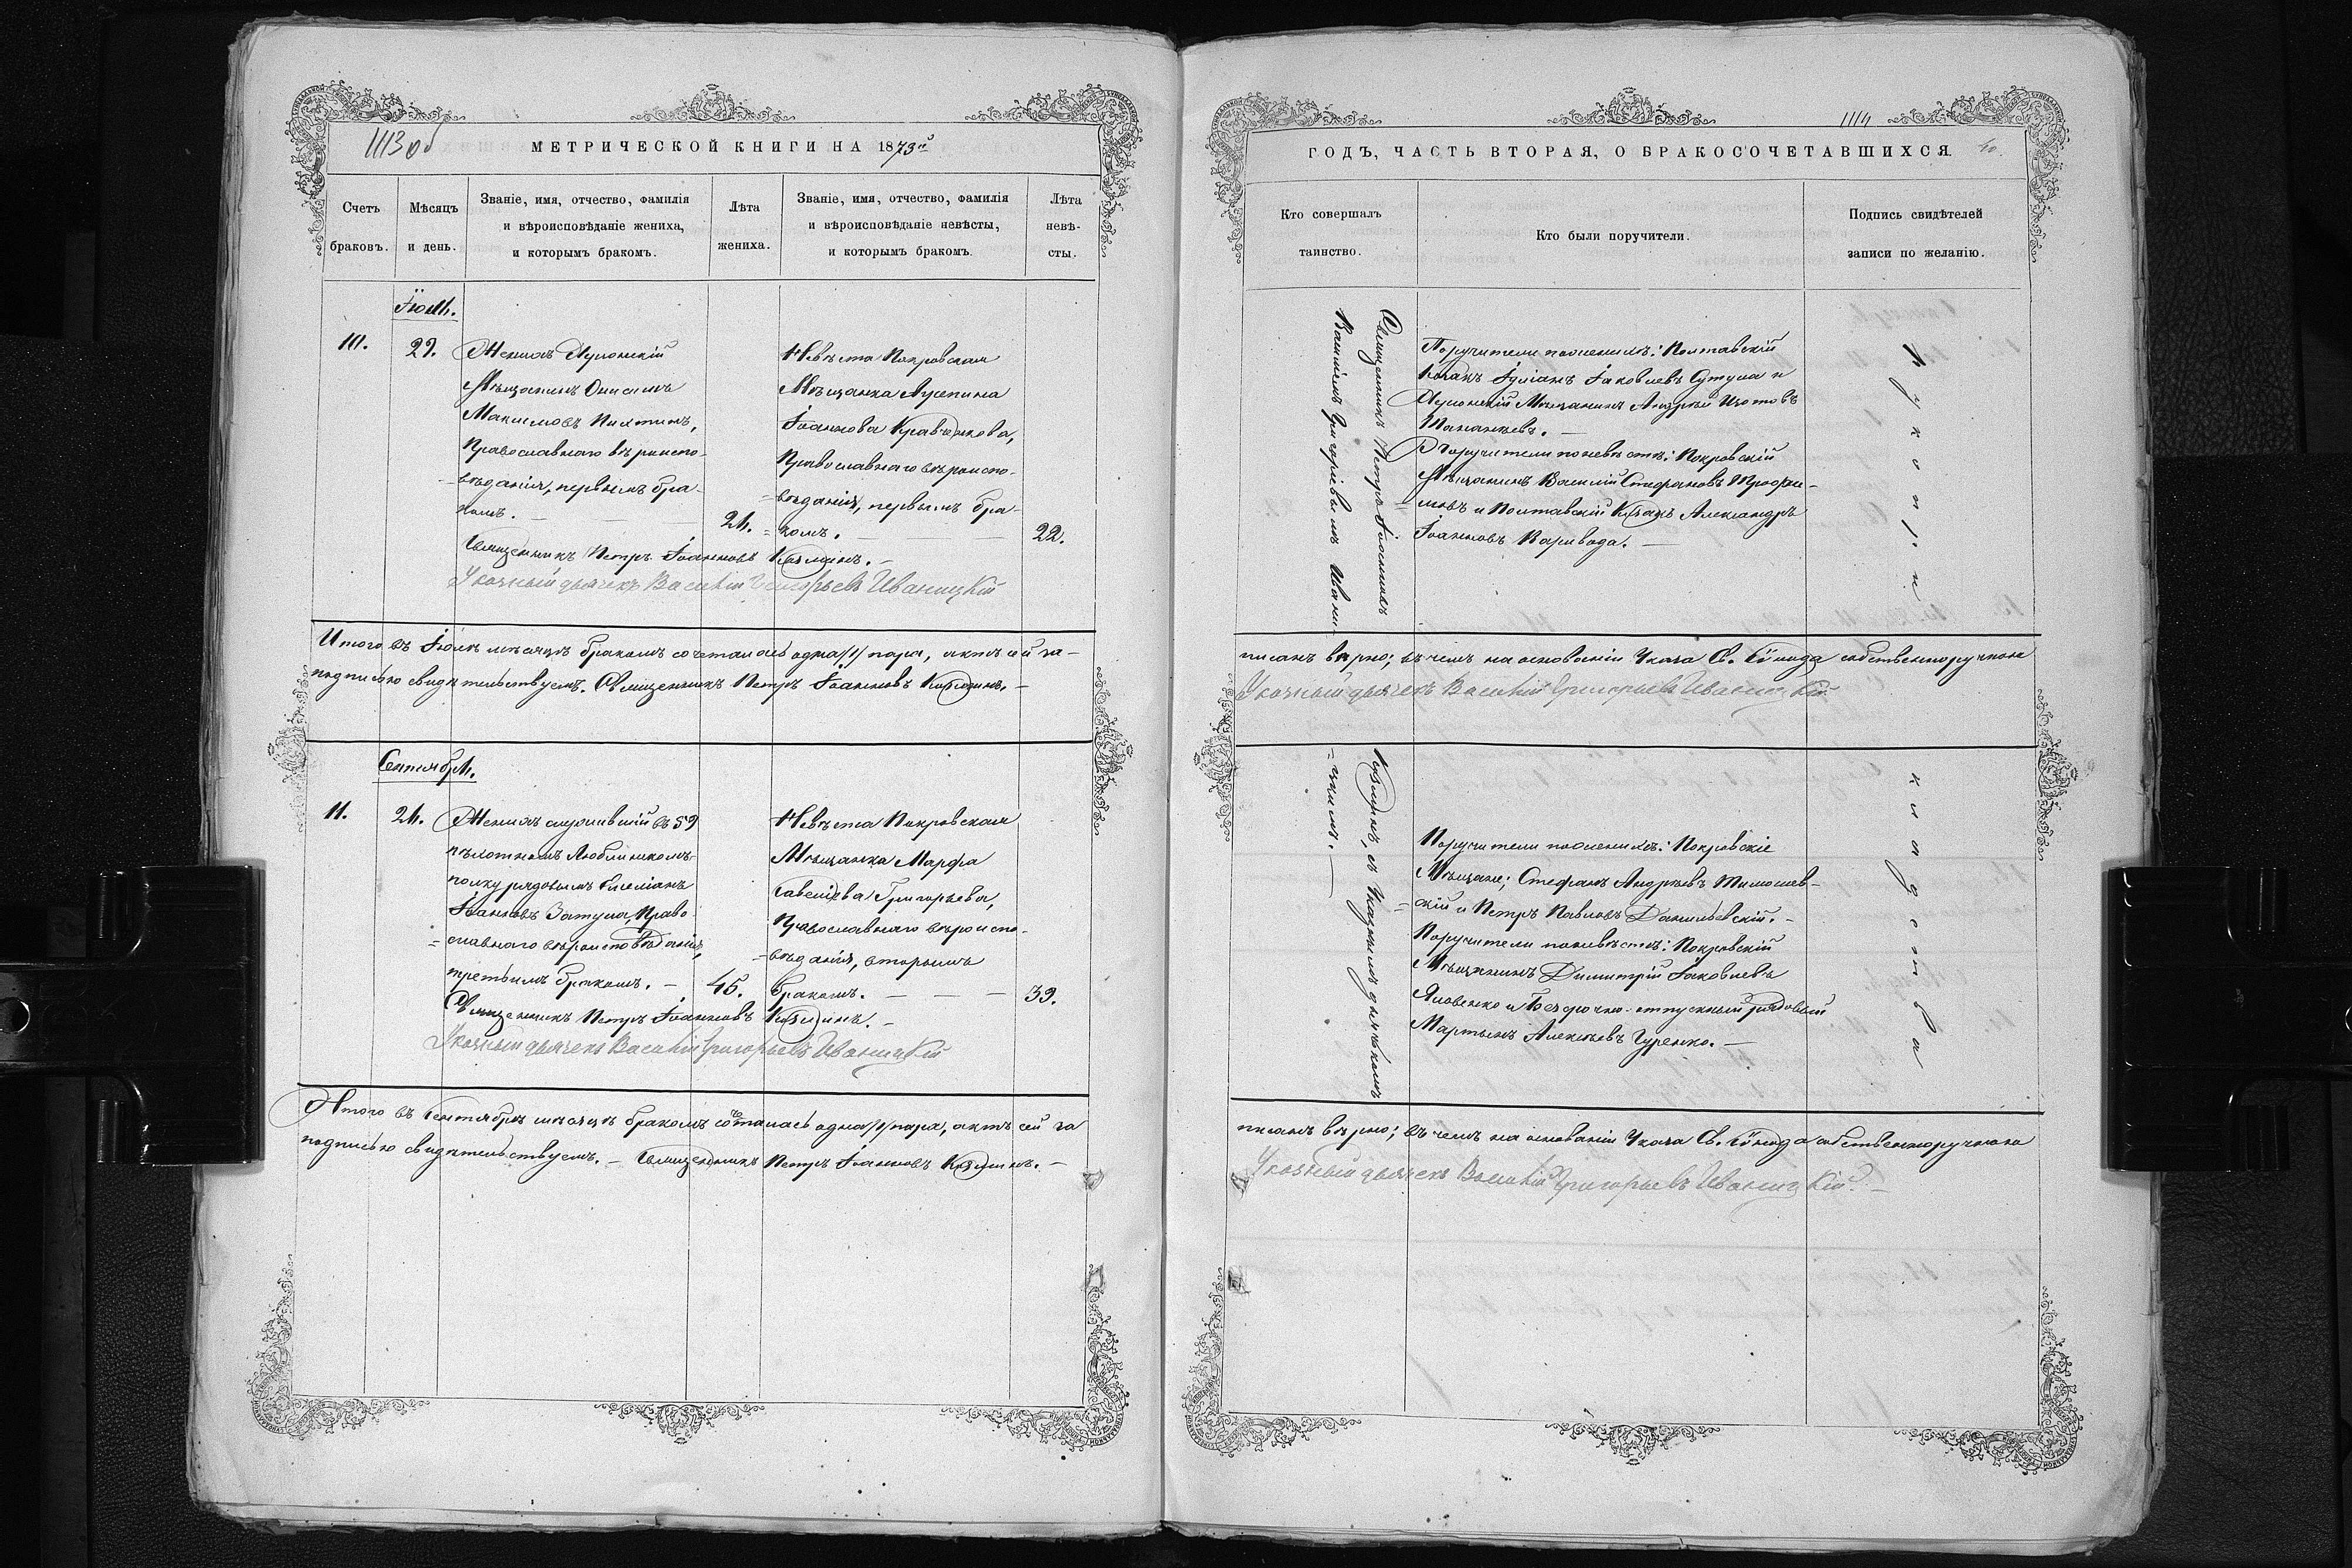 1113 об
МЕТРИЧЕСКОЙ КНИГИ НА 1873й
Счетъ браковъ.
Мѣсяцъ и день.
Званіе, имя, отчество, фамилія
и вѣроисповѣданіе жениха,
и которымъ бракомъ.
Лѣта жениха.
Званіе, имя, отчество, фамилія
и вѣроисповѣданіе невѣсты,
и которымъ бракомъ.
Лѣта невѣ-
сты.
10.
29.
Женихъ
Мѣщанинъ Онисимъ
Максимовъ
Православнаго вѣроиспо-
вѣданія, первымъ бра-
комъ.
24.
Невѣста Покровская
Мѣщанка
Іоаннова Кравченкова,
Православнаго вѣроиспо-
вѣданія, первымъ бра-
комъ.
22.
Священникъ Петръ Іоанновъ Козминъ.
Указный дьячекъ Василій Григорьевъ Иваницкій
Итого въ Іюлѣ мѣсяцѣ бракомъ сочеталась одна /1/ пара, актъ сей за-
подписью свидѣтельствуемъ. Священникъ Петръ Іоанновъ Козминъ.
Сентябрь.
11.
24.
Женихъ служившій въ 59
пѣхотномъ Люблинскомъ
полку рядовымъ Емеліанъ
Іоанновъ Затула, Право-
славнаго вѣроисповѣданія,
третьимъ бракомъ.
45.
Невѣста Покровская
Мѣщанка Марфа
Савеліева Григорьева,
Православнаго вѣроиспо-
вѣданія, вторымъ
бракомъ.
39.
Священникъ Петръ Іоанновъ Козминъ.
Указный дьячекъ Василій Григорьевъ Иваницкій
Итого въ Сентябрѣ мѣсяцѣ бракомъ сочеталась одна /1/ пара, актъ сей за
подписью свидѣтельствуемъ. Священникъ Петръ Іоанновъ Козминъ.
1114
ГОДЪ, ЧАСТЬ ВТОРАЯ, О БРАКОСОЧЕТАВШИХСЯ.
Кто совершалъ
таинство.
Кто были поручители.
Подпись свидѣтелей
записи по желанію.
Священникъ Петръ Іоанновъ
Василіемъ Григорьевымъ Ивани-
Поручители по женихѣ: Полтавскій
Козакъ Іуліанъ Іаковлевъ Сутула и
Мѣщанинъ Андрей Изотовъ
Поручители по невѣстѣ: Покровскій
Мѣщанинъ Василій Стефановъ Трофи-
мовъ и Полтавскій Козакъ Александръ
ІоанновъВаривода.
Рукопри
писанъ вѣрно; въ чемъ на основаніи Указа Св. Сѵнода собственноручною
Указный дьячекъ Василій Григорьевъ Иваницкій
Козминъ, съ Указнымъ дьячкомъ
цкимъ.
Поручители по женихѣ: Покровскіе
Мѣщане; Стефанъ Андреевъ Тимошев-
скій и Петръ Павловъ Данилевскій.
Поручители по невѣстѣ: Покровскій
Мѣщанинъ Димитрій Іаковлевъ
Яловенко и Безсрочно-отпускный рядовый
Мартынъ Алексѣевъ Гуренко.
кладства
писанъ вѣрно; въ чемъ на основаніи Указа Св. Сѵнода собственноручною
Указный дьячекъ Василій Григорьевъ Иваницкій.